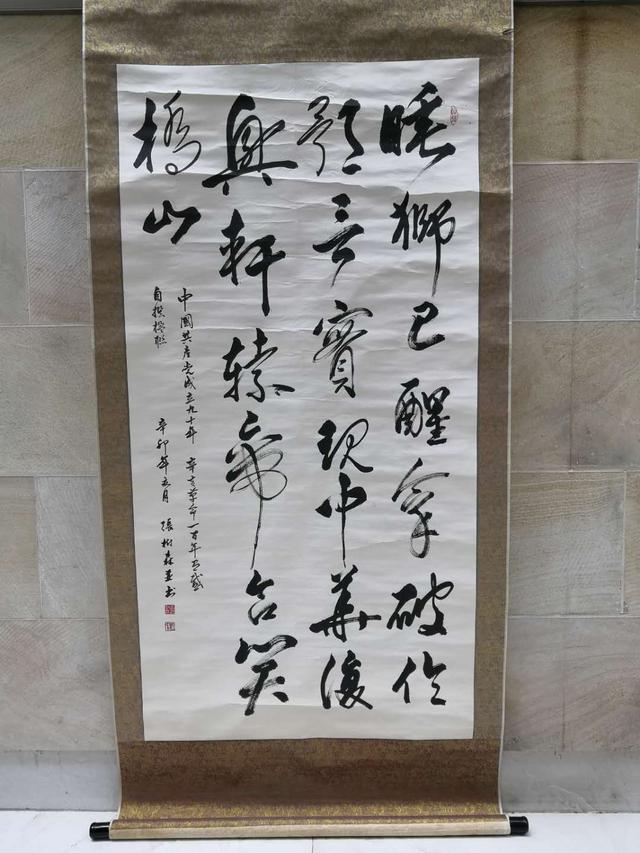 睡獅已醒拿破伦
預言實現中華復
興軒轅帝含笑
橋山
中國共產党成立九十年 辛亥革命一百年有感
自撰楹联 辛卯年五月 張樹森並书